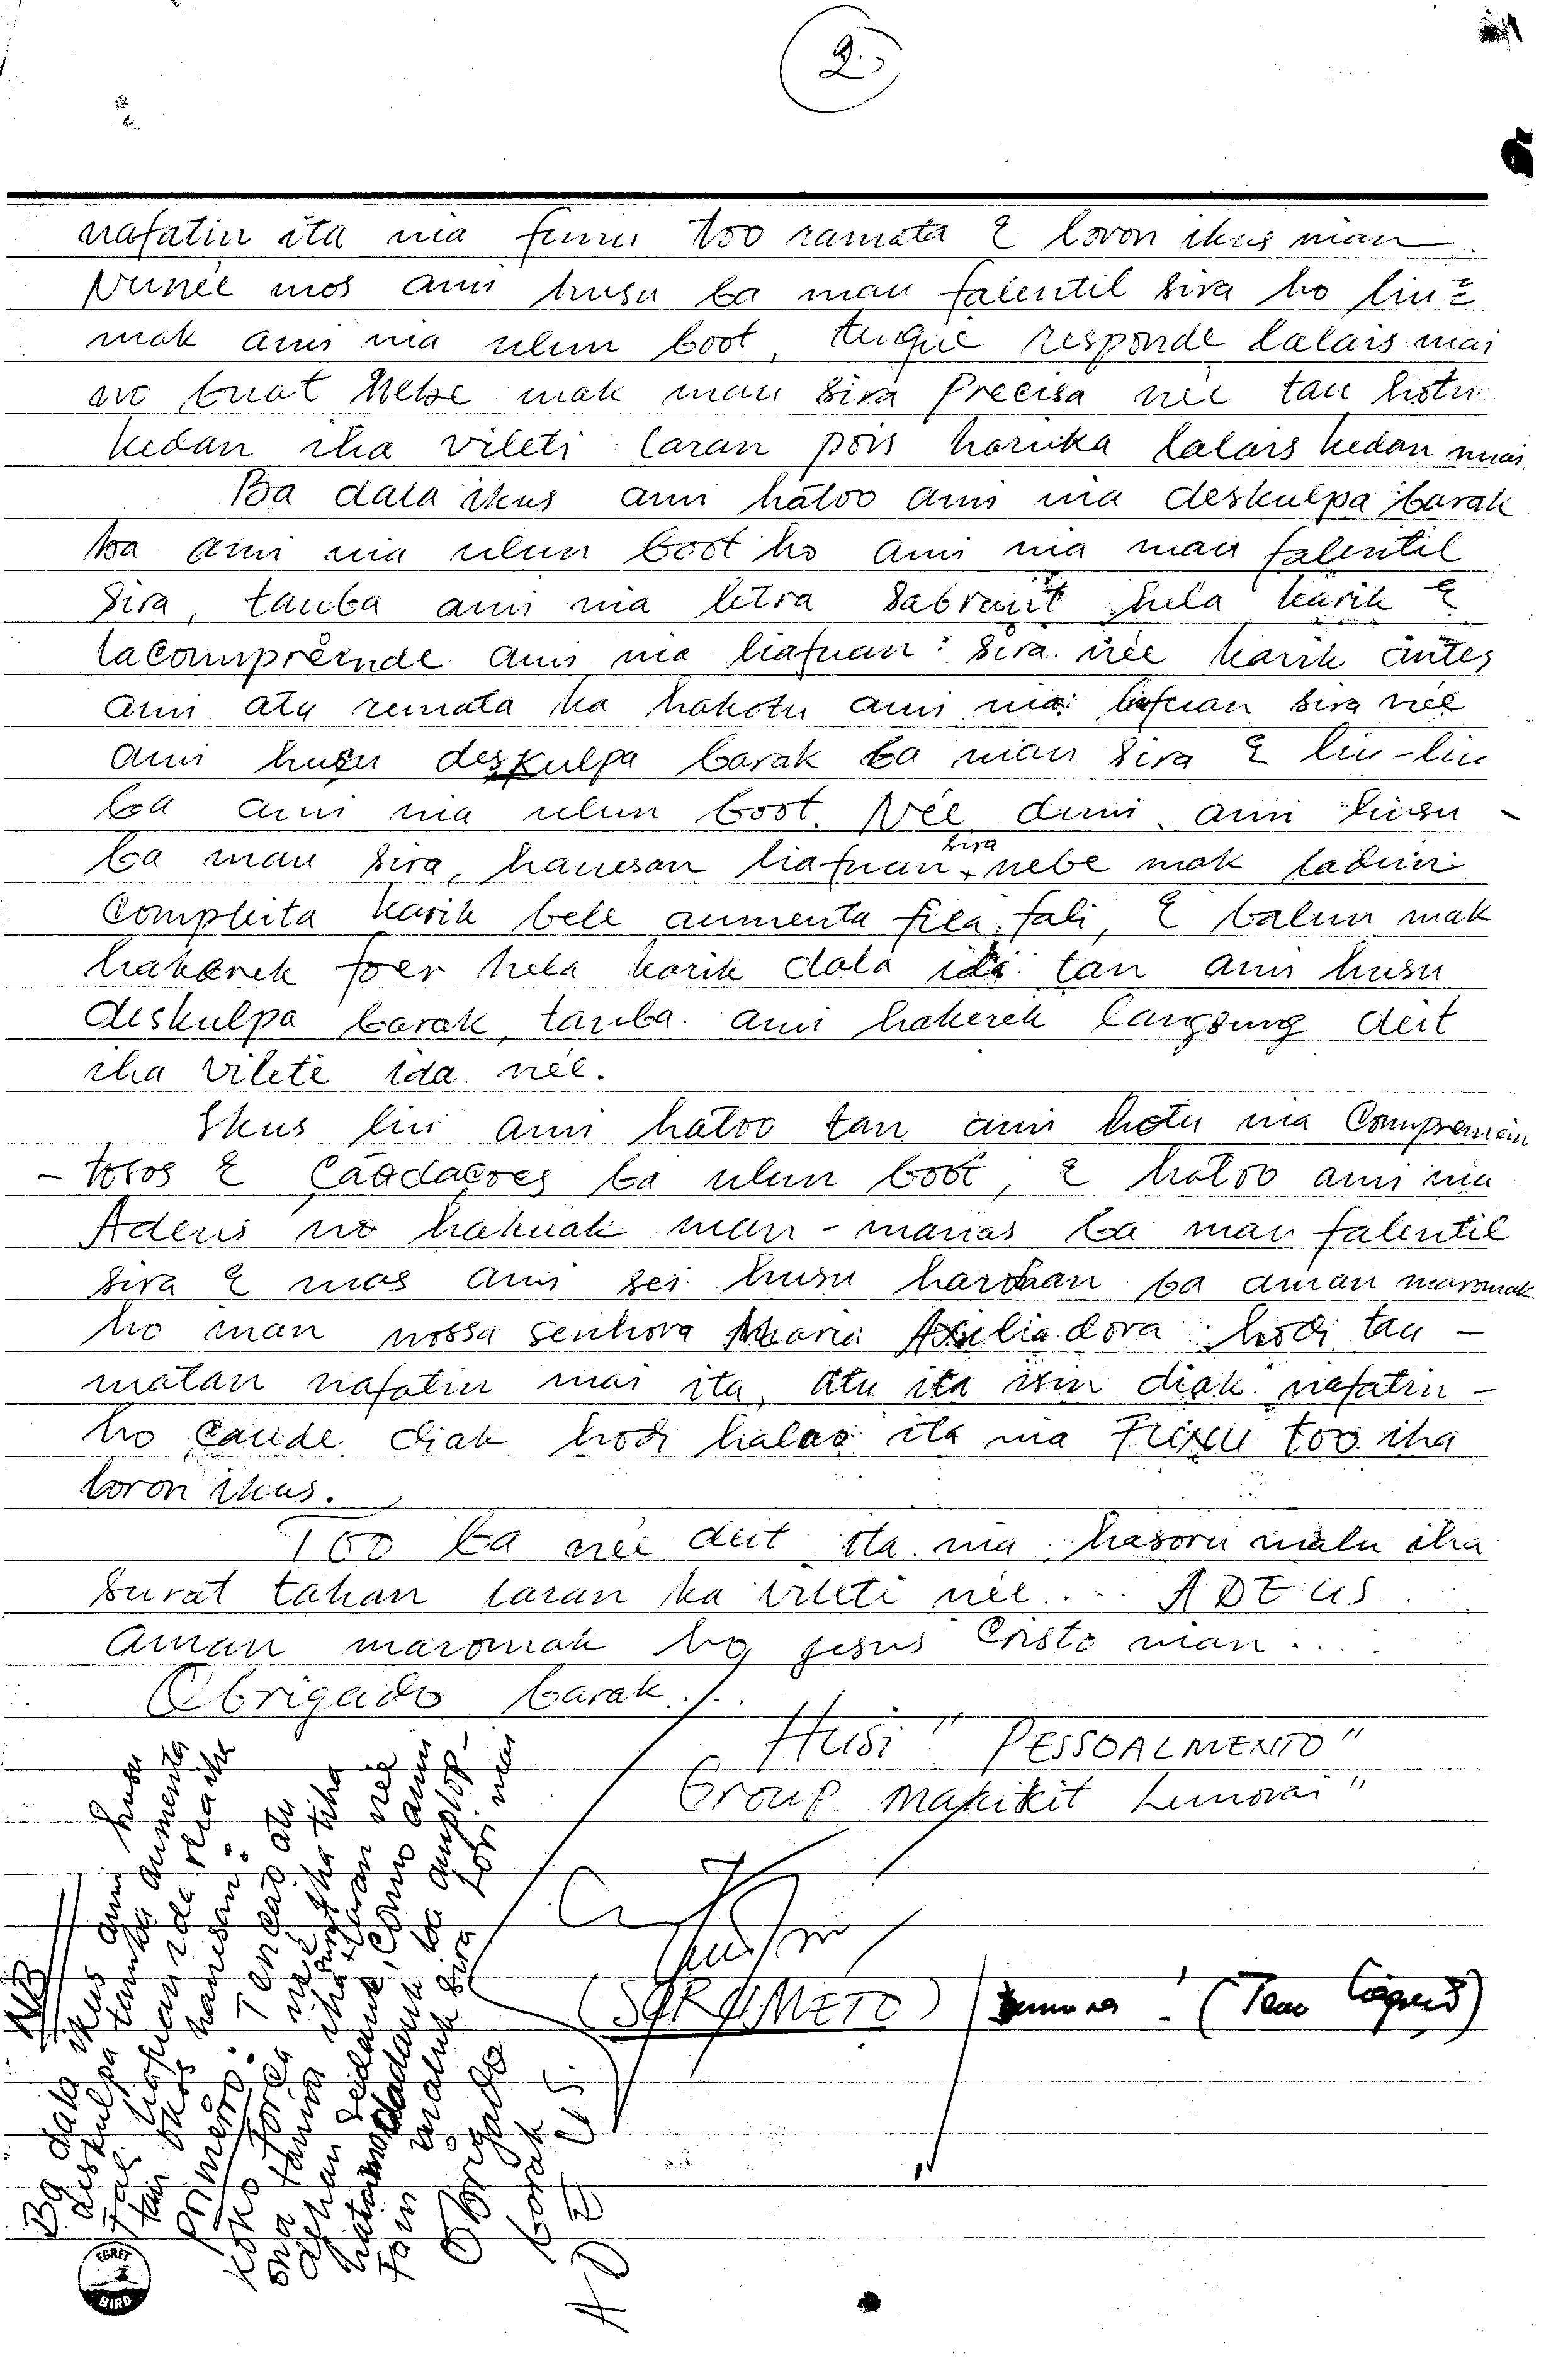 2.
nafatin ita nia funu too ramata E loron ikus nian
Nuneé mos ami husu ba mau falentil sira ho liu²
mak ami nia ulun boot, responde lalais mai
no buat Nebe mak mau sira Precisa neé tau hotu
kedan iha vileti laran pois haruka lalais kedan mai.
Ba dala ikus ami hátoo ami nia deskulpa barak
ba ami nia ulun boot ho ami nia mau falentil
sira, tauba ami nia letra hela karik E
lacomprêende ami nia liafuan sira neé karik ántes
ami atu remata ka hakotu ami nia liafuan sira neé
ami husu deskulpa barak ba mau sira E liu-liu
ba ami nia ulun boot. Neé duni ami husu -
ba mau sira, hanesan liafuan sira nebe mak laduni
Compleita karik bele aumenta fila fali, E balun mak
hakerek foer hela karik dala ida tan ami husu
deskulpa barak, tauba ami hakerek langsung deit
iha vileté ida neé.
Ikus liu ami hátoo tan ami hotu nia Compremim
- tosos E ba ulun boot, E hátoo ami nia
Adeus no hakuak man-manas ba mau falentil
sira E mos ami sei husu harohan ba aman maromak
ho inan nossa senhora Maria Axiliadora hodi tau -
matan nafatin mai ita, atu ita isin diak nafatin -
ho çaude diak hodi halao ita nia Funu too iha
loron ikus.
Too ba neé deit ita nia hasoru malu iha
surat tahan laran ka vileti neé... ADEUS
Aman maromak ho jesus Cristo nian....
Obrigado barak...
Husi "PESSOALMENTO"
Group Makikit Lemorai"
(SARAMETO)
NB
Ba dala ikus ami husu
deskulpa tamba aumenta
fali liafuan ida rua iha
tan okos hanesan:
primeiro: Tencao atu
koko forca neé iha tiha
ona tamba iha laran neé
Obrigado
barak
ADEUS
EGRET
BIRD